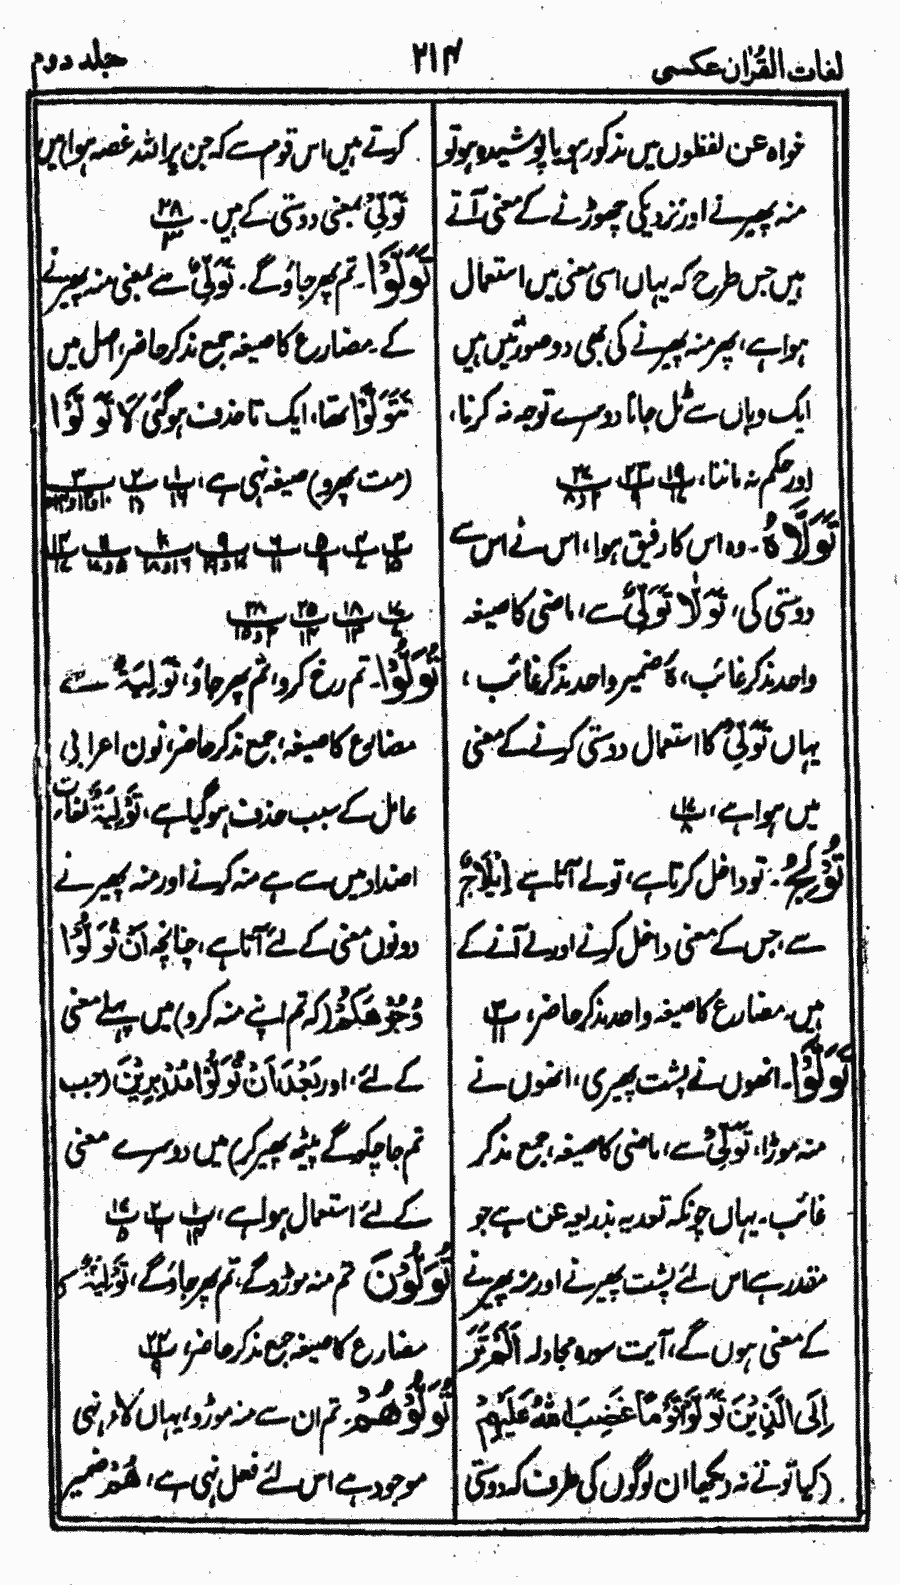 لغات القرآن عکسی
۲۱۴
جلد دوم
خواہ عن لفظوں میں مذکور ہو یا پوشیدہ ہو تو
منہ پھیرنے اور نزدیکی چھوڑنے کے معنی آتے
ہیں جس طرح کہ یہاں اسی معنی میں استعمال
ہوا ہے، پھر منہ پھیرنے کی بھی دو صورتیں ہیں
ایک وہاں سے ٹل جانا دوسرے توجہ نہ کرنا،
اور حکم نہ ماننا،
تَوَلَّاہُ۔ وہ اس کا رفیق ہوا، اس نے اس سے
دوستی کی، تَوَلّٰا تَوَلِّیْ سے، ماضی کا صیغہ
واحد مذکر غائب، ہٗ ضمیر واحد مذکر غائب،
یہاں تَوَلِّیْ کا استعمال دوستی کرنے کے معنی
میں ہوا ہے،
تُوْلِجُ۔ تو داخل کرتا ہے، تو لے آتا ہے اِیْلَاجٌ
سے، جس کے معنی داخل کرنے اور لے آنے کے
ہیں۔ مضارع کا صیغہ واحد مذکر حاضر،
تَوَلَّوْا۔ انھوں نے پشت پھیری، انھوں نے
منہ موڑا، تَوَلِّیْ سے، ماضی کا صیغہ، جمع مذکر
غائب۔ یہاں چونکہ تعدیہ بذریعہ عن ہے جو
مقدر ہے اس لئے پشت پھیرنے اور منہ پھیرنے
کے معنی ہوں گے، آیت سورہ مجادلہ اَلَمْ تَرَ
اِلَی الَّذِیْنَ تَوَلَّوْا قَوْمًا غَضِبَ اللّٰہُ عَلَیْہِمْ
(کیا تو نے نہ دیکھا ان لوگوں کی طرف کہ دوستی
کرتے ہیں اس قوم سے کہ جن پر اللہ غصہ ہوا) میں
تَوَلِّیْ بمعنی دوستی کے ہیں۔ ۲۸
تَوَلَّوْا۔ تم پھر جاؤ گے۔ تَوَلِّیْ سے بمعنی منہ پھیرنے
کے۔ مضارع کا صیغہ جمع مذکر حاضر، اصل میں
تَتَوَلَّوْا تھا، ایک تا حذف ہوگئی لَا تَوَلَّوْا
(مت پھرو) صیغہ نہی ہے،
تُوَلُّوْا۔ تم رخ کرو، تم پھر جاؤ، تَوْلِیَۃٌ سے
مضارع کا صیغہ، جمع مذکر حاضر، نون اعرابی
عامل کے سبب حذف ہوگیا ہے، تَوْلِیَۃٌ لغات
اضداد میں سے ہے منہ کرنے اور منہ پھیرنے
دونوں معنی کے لئے آتا ہے، چنانچہ اَنْ تُوَلُّوْا
وُجُوْھَکُمْ (کہ تم اپنے منہ کرو) میں پہلے معنی
کے لئے، اور بَعْدَ اَنْ تُوَلُّوْا مُدْبِرِیْنَ (جب
تم جا چکو گے پیٹھ پھیر کر) میں دوسرے معنی
کے لئے استعمال ہوا ہے،
تُوَلُّوْنَ تم منہ موڑو گے، تم پھر جاؤ گے، تَوْلِیَۃٌ سے
مضارع کا صیغہ جمع مذکر حاضر،
تُوَلُّوْھُمْ۔ تم ان سے منہ موڑو، یہاں لاء نہی
موجود ہے اس لئے فعل نہی ہے، ھُمْ ضمیر